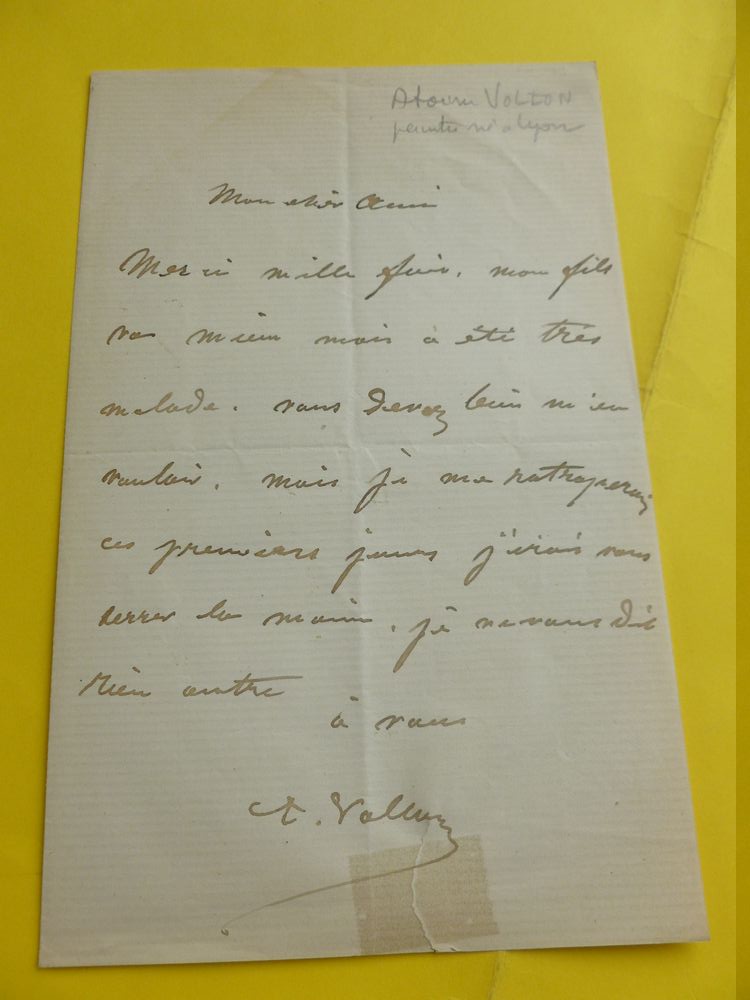 VOLLON
peintre né à Lyon
Mon cher Ami
Merci mille fois. mon fils
va mieux mais a été très
malade. vous devez bien m'en
vouloir. mais je me ratraperai
ces premiers jours j'irai vous
serrer la main. je ne vous dis
rien autre
à vous
A. Vollon